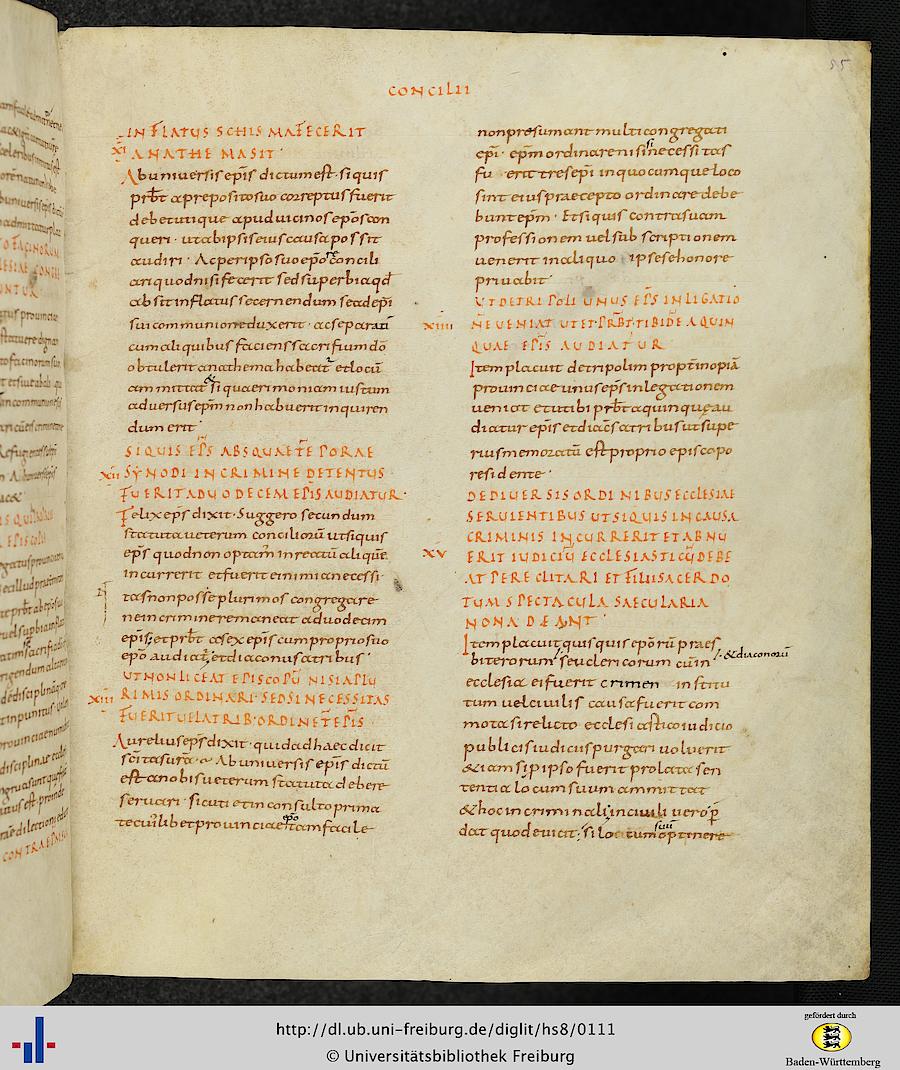 CONCILII
INFLATUS SCHISMA FECERIT
XI ANATHEMA SIT
Ab universis ep̄is dictum est. si quis
prb̄t a preposito suo correptus fuerit
debet utique apud uicinos ep̄os con
queri. ut ab ipsis eius causa possit
audiri. Ac per ipsos suo ep̄o re concili
ari quod nisi fecerit sed superbia qd̄
absit inflatus secernendum se a dep̄i
sui communione duxerit. ac separati
cum aliquibus faciens sacrifium dō
obtulerit anathema habeat̄ et locū
ammittat & si quaerimoniam iustam
aduersus ep̄m non habuerit inquiren
dum erit
SI QUIS EP̄S ABSQUAE TĒPORAE
XII SYNODI IN CRIMINE DETENTUS
FUERIT A DUODECEM EP̄IS AUDIATUR
Felix ep̄s dixit. Suggero secundum
statuta ueterum conciliorū ut si quis
ep̄s quod non optam̄ in reatū aliquē
incurrerit et fuerit ei nimia necessi
tas non posse plurimos congregare
ne in crimine remaneat a duodecim
ep̄is; et prb̄t a sex ep̄is cum proprio suo
ep̄o audiat̄; et diaconus a tribus
UT NON LICEAT EPISCOPŪ NISI A PLU
XIII RIMIS ORDINARI. SED SI NECESSITAS
FUERIT UEL A TRIB· ORDINET̄ EP̄IS
Aurelius ep̄s dixit. quid ad haec dicit
sc̄itas ura. Ab uniuersis ep̄is dictū
est a nobis ueterum statuta debere
seruari. sicuti et in consulto prima
te cuiuslibet prouinciae ep̄o tam facile
non presumant multi congregati
ep̄i. ep̄m ordinare nisi si necessitas
fu erit tres ep̄i in quocumque loco
sint eius praecepto ordinare debe
bunt ep̄m. Et si quis contra suam
professionem uel subscriptionem
uenerit in aliquo ipse se honore
priuabit
UT DE TRIPOLI UNUS EP̄S IN LIGATIO
XIIII NE UENIAT UT ET PRB̄T IBIDE A QUIN
QUAE EP̄IS AUDIATUR
Item placuit de tripolim propt̄ inopiā
prouinciae unus ep̄s in legationem
ueniat et ut ibi prb̄t a quinque au
diatur ep̄is et diac̄s a tribus ut supe
rius memoratū est proprio episcopo
residente
DE DIUERSIS ORDINIBUS ECCLESIAE
SERUIENTIBUS UT SI QUIS IN CAUSA
CRIMINIS INCURRERIT ET ABNU
XV ERIT IUDICIŪ ECCLESIASTICŪ DEBE
AT PERECLITARI ET FILII SACERDO
TUM SPECTACULA SAECULARIA
NON ADEANT
Item placuit quisquis ep̄orū praes
biterorum seu clericorum cū in & diaconorū
ecclesia ei fuerit crimen institu
tum uel ciuilis causa fuerit com
mota si relicto ecclesiastico iudicio
publicis iudiciis purgari uoluerit
&iamsi p ipso fuerit prolata sen
tentia locum suum ammittat
& hoc in criminali in ciuili uero p̄
dat quod euicit; si locum suū optinere
85
http://dl.ub.uni-freiburg.de/diglit/hs8/0111
© Universitätsbibliothek Freiburg
gefördert durch
Baden-Württemberg